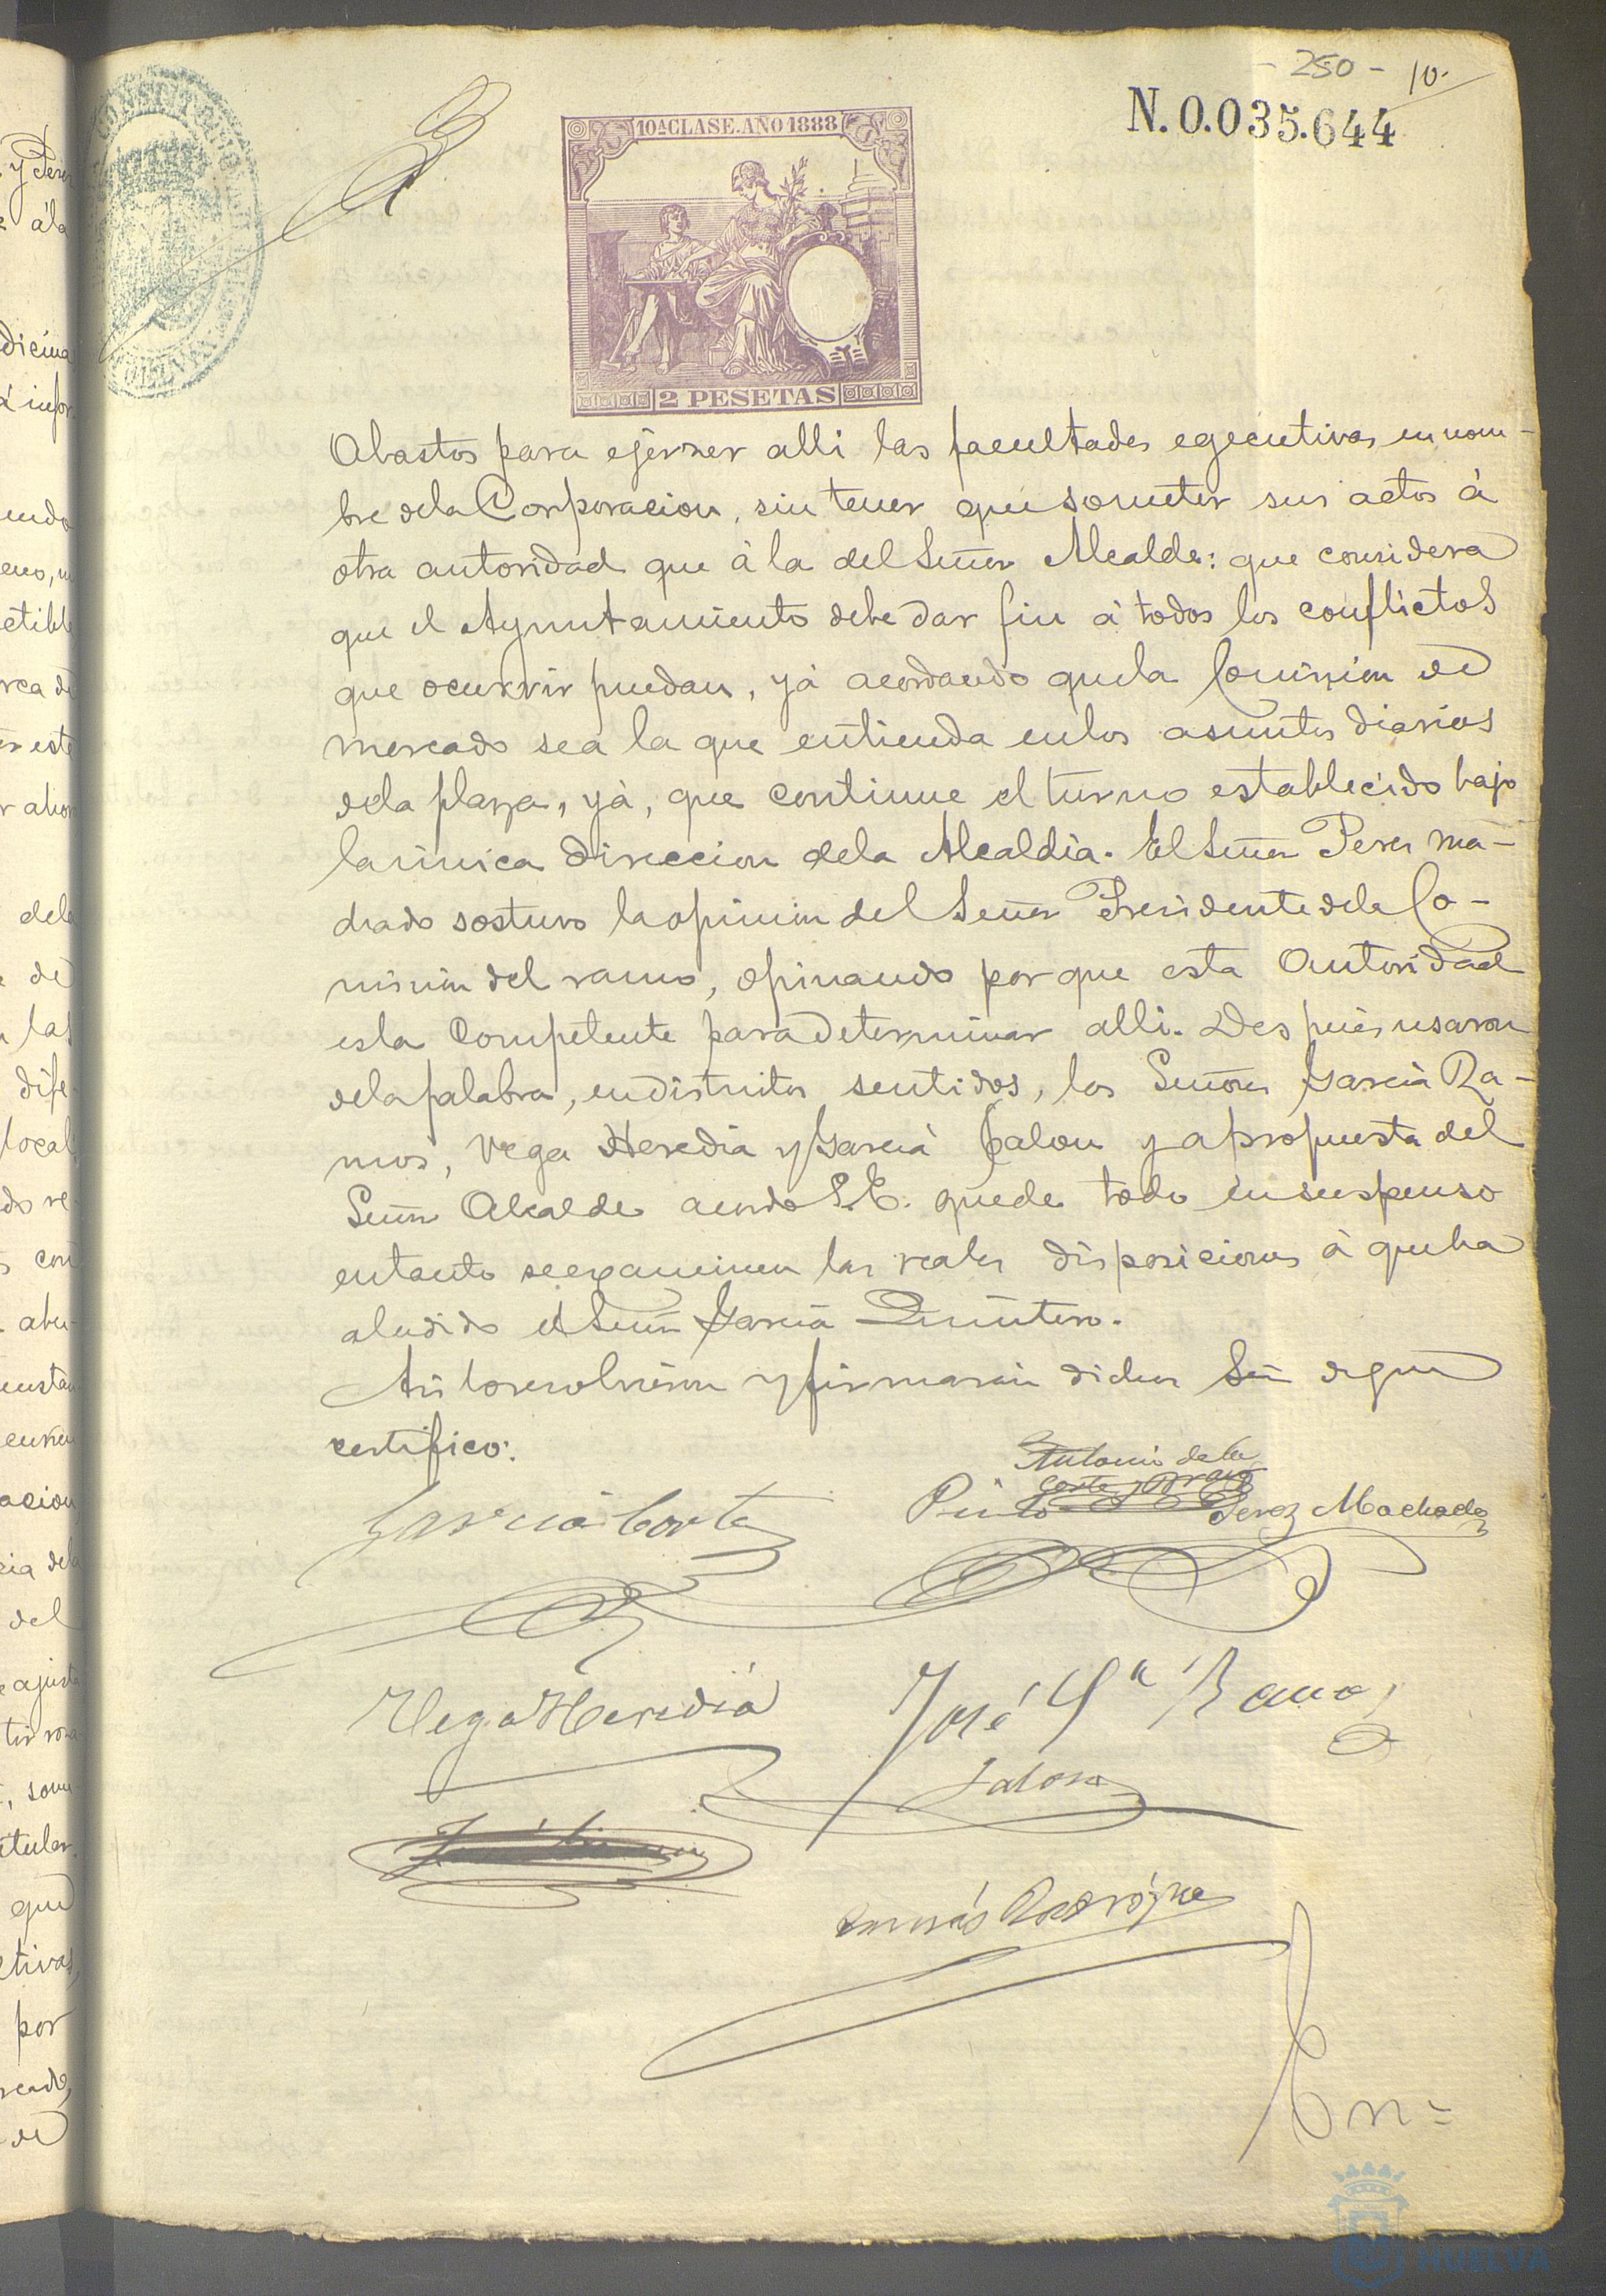 - 250 - 10.
N. 0.035.644
10ª CLASE. AÑO 1888
2 PESETAS
Abastos para ejerzer alli las facultades egecutivas en nom-
bre dela Corporacion, sin tener que someter sus actos à
otra autoridad que à la del Señor Alcalde: que considera
que el Ayuntamiento debe dar fin à todos los conflictos
que ocurrir puedan, yà acordando quela Comision de
mercado sea la que entienda enlos asuntos diarios
dela plaza, yà, que continue el turno establecido bajo
launica direccion dela Alcaldia. El Señor Perez Ma-
chado sostuvo laopinion del Señor Presidente dela Co-
mision del ramo, opinando por que esta Autoridad
esla competente para determinar alli. Despues usaron
dela palabra, endistintos sentidos, los Señores Garcia Ra-
mos, Vega Heredia y Garcia Jalon y a propuesta del
Señor Alcalde acordo S.E. quede todo en suspenso
entanto seexaminen las reales disposiciones à queha
aludido el Señor Garcia Quintero.
Asi loresolvieron y firmaran dichos Señ deque
certifico:
Garcia Cortes
Antonio dela
Corte y Bravo
Pinto
Perez Machado
Vega Heredia
José Gª Ramos
Jalon
Tomás Rodríguez
En=
HUELVA